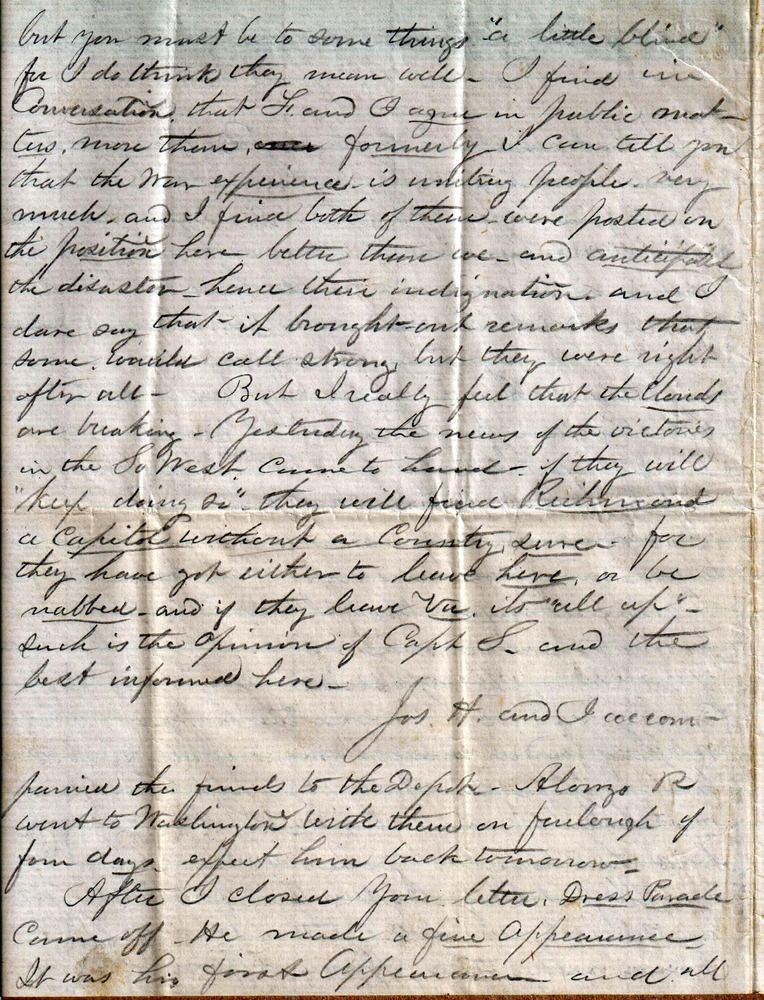 but you must be to some things "a little blind"
for I do think they mean well - I find in
Conversation, that F. and I agree in public mat-
ters, more than, formerly I can tell you
that the War experience is uniting people very
much, and I find both of them were posted on
the position here better than we - and anticipated
the disaster - hence their indignation. and I
dare say that it brought out remarks that
some would call strong, but they were right
after all - But I really feel that the Clouds
are breaking - Yesterday the news of the victories
in the So West came to hand - if they will
"keep doing so" they will find Richmond
a Capitol without a Country, sure - for
they have got either to leave here, or be
nabbed - and if they leave Va. its "all up" -
such is the opinion of Capt S. and the
best informed here -
Jos. H. and I accom-
panied the friends to the Depot - Alonzo R
went to Washington with them on furlough of
four days expect him back tomorrow -
After I closed Your letter, Dress Parade
Came off - He made a fine Appearance
It was his first Appearance and all